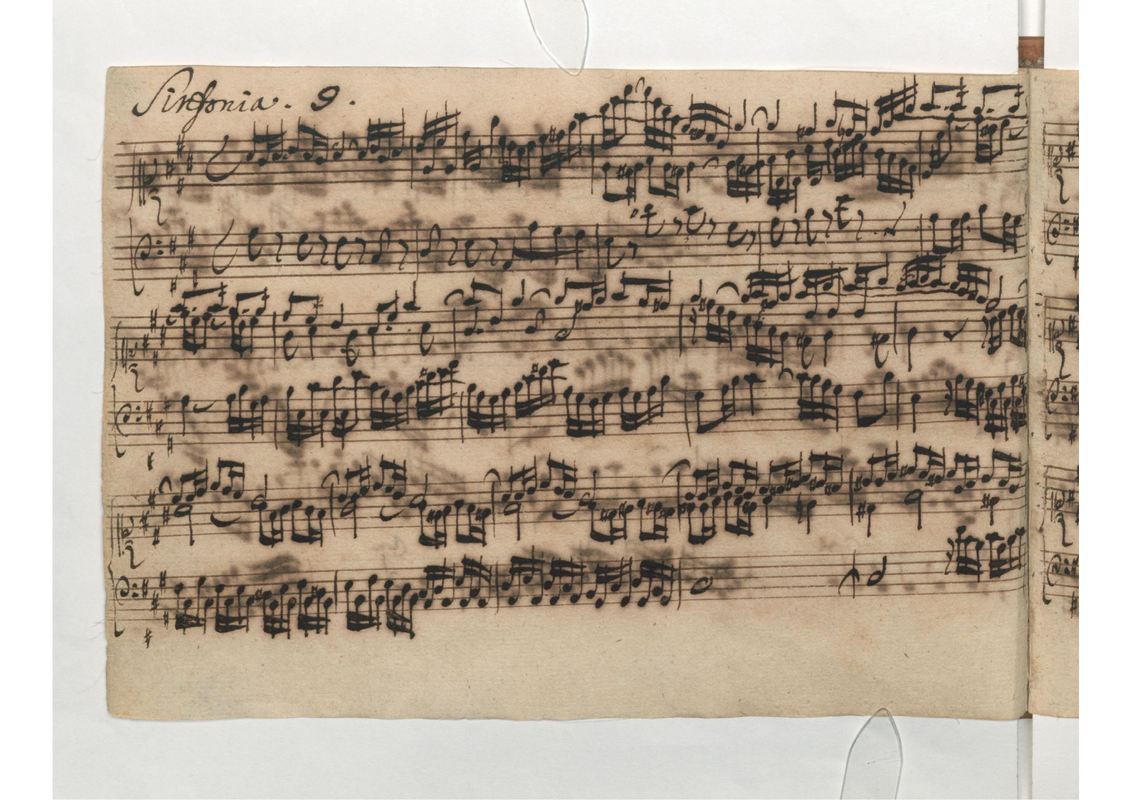 Sinfonia. 9.